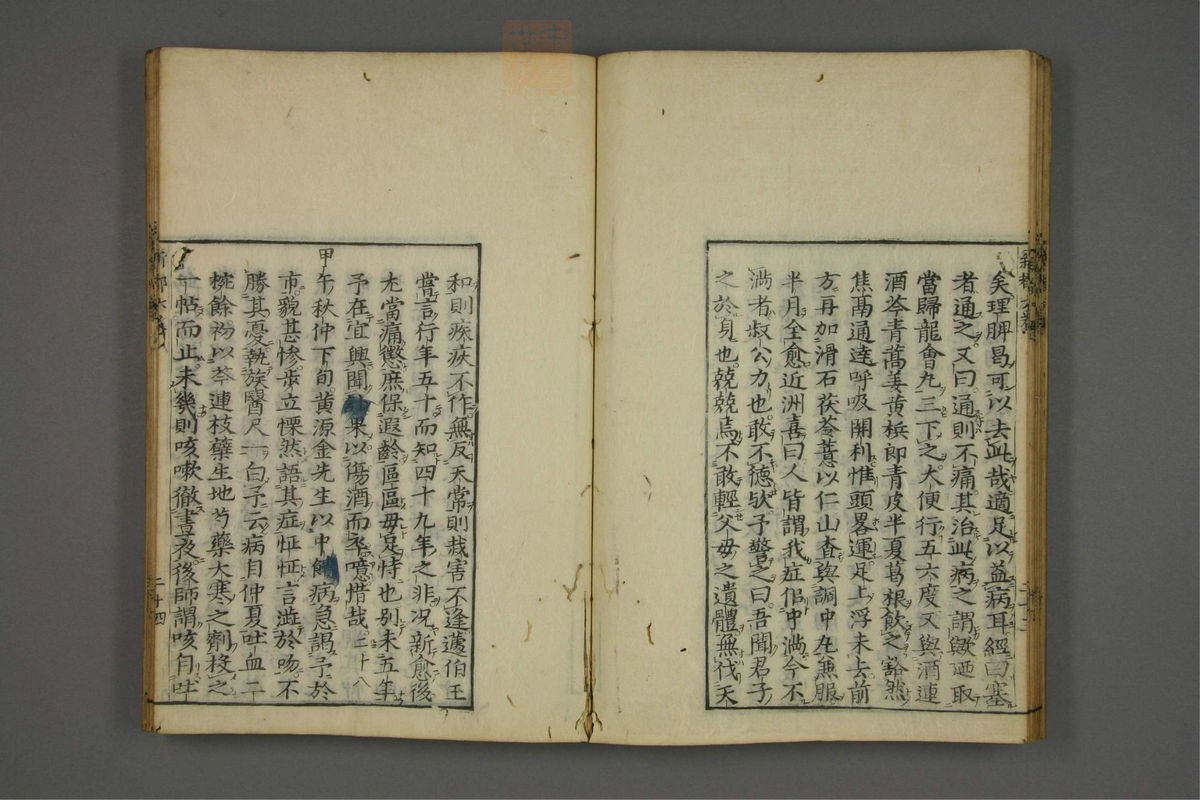 矣理脾曷可以去此哉適足以益病耳經曰塞
者通之又曰通則不痛其治此病之謂歟廼取
當歸龍會丸三下之大便行五六度又與酒連
酒芩青蒿姜黃檳即青皮半夏葛根飲之豁然
焦鬲通達呼吸開利惟頭畧運足上浮未去前
方再加滑石茯苓薏以仁山查與調中丸無服
半月全愈近洲喜曰人皆謂我症俱中滿今不
滿者叔公力也敢不德欤予警之曰吾聞君子
之於身也兢兢焉不敢輕父母之遺體無伐天
和則疾疢不作無反天常則栽害不逢蘧伯玉
嘗言行年五十而知四十九年之非况新愈後
尤當痛懲庶保遐齡區區毋足恃也别未五年
予在宜興聞果以傷酒而卒噫惜哉二十八
甲午秋仲下旬黃源金先生以中病急謁予於
市貌甚惨步立慄然語其症怔怔言澁於吻不
勝其憂執族醫尺一白予云病自仲夏吐血二
椀餘初以芩連枝蘗生地芍藥大寒之劑投之
一帖而止未幾則咳嗽徹晝夜後師謂咳自吐
二十四